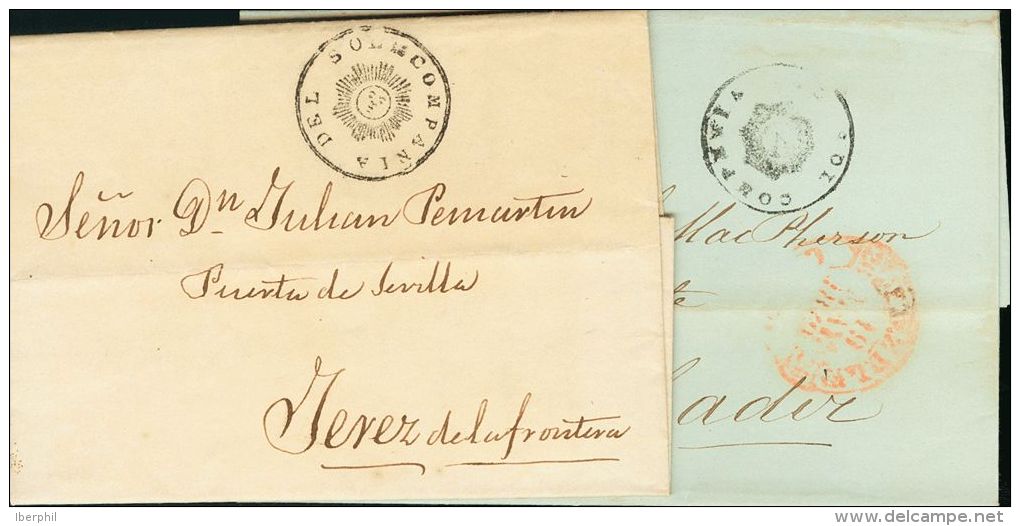 COMPAÑIA DEL SOL
Señor Dn Julian Pemartin
Puerta de Sevilla
Jerez de la frontera
COMPAÑIA
Mac Pherson
Iberphil
www.delcampe.net